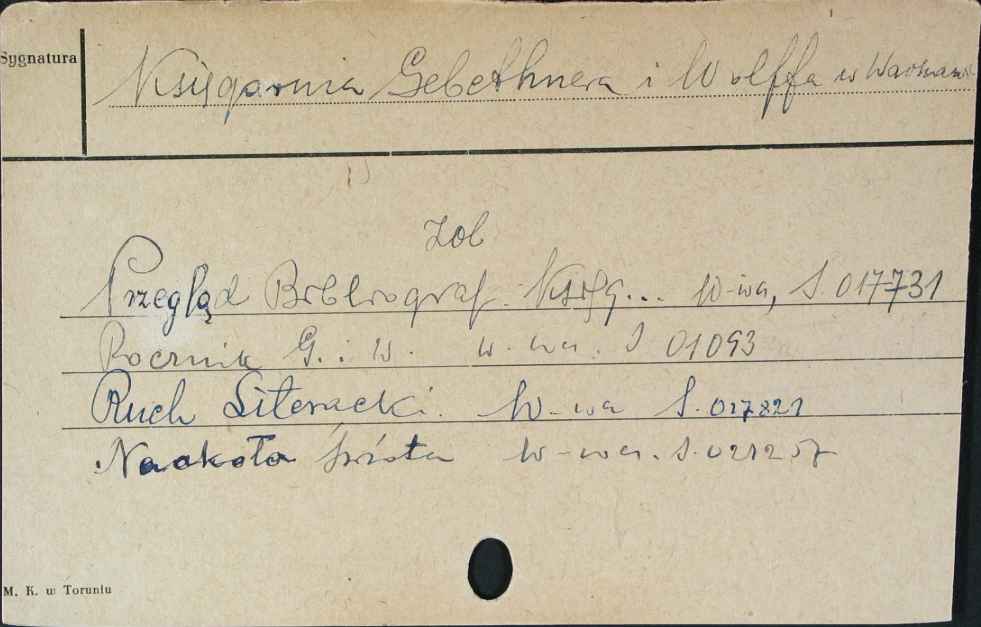 Sygnatura
Księgarnia Gebethnera i Wolffa w Warszawie
Zob
Przegląd Bibliograf. Księg... W-wa, S. 017731
Rocznik G. i W. W-wa. S 01093
Ruch Literacki. W-wa S. 017821
Naokoło świata W-wa. S. 021207
M. K. w Toruniu